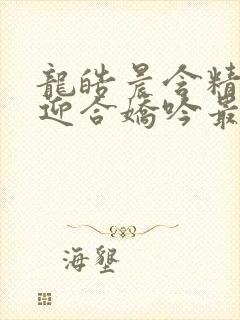 龍皓晨含精
迎合嬌吟最
海墾